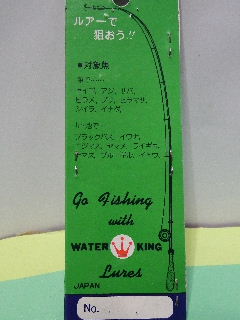 ルアーで
狙おう!!
●対象魚
セイゴ、アジ、サバ、
ヒラメ、ブリ、ヒラマサ、
シイラ、イナダ、
ブラックバス、イワナ、
ニジマス、ヤマメ、ライギョ、
ブルーギル、イトウ、
Go Fishing
with
WATER KING
Lures
JAPAN
No.